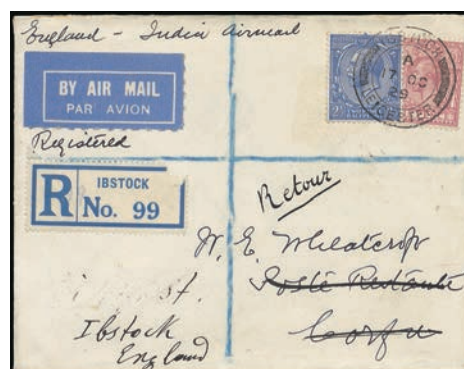 England – India Airmail
BY AIR MAIL
PAR AVION
Registered
R IBSTOCK
No. 99
A
17 OC
29
LEICESTER
Retour
W. E. Wheatcroft
Poste Restante
Corfu
Ibstock
England